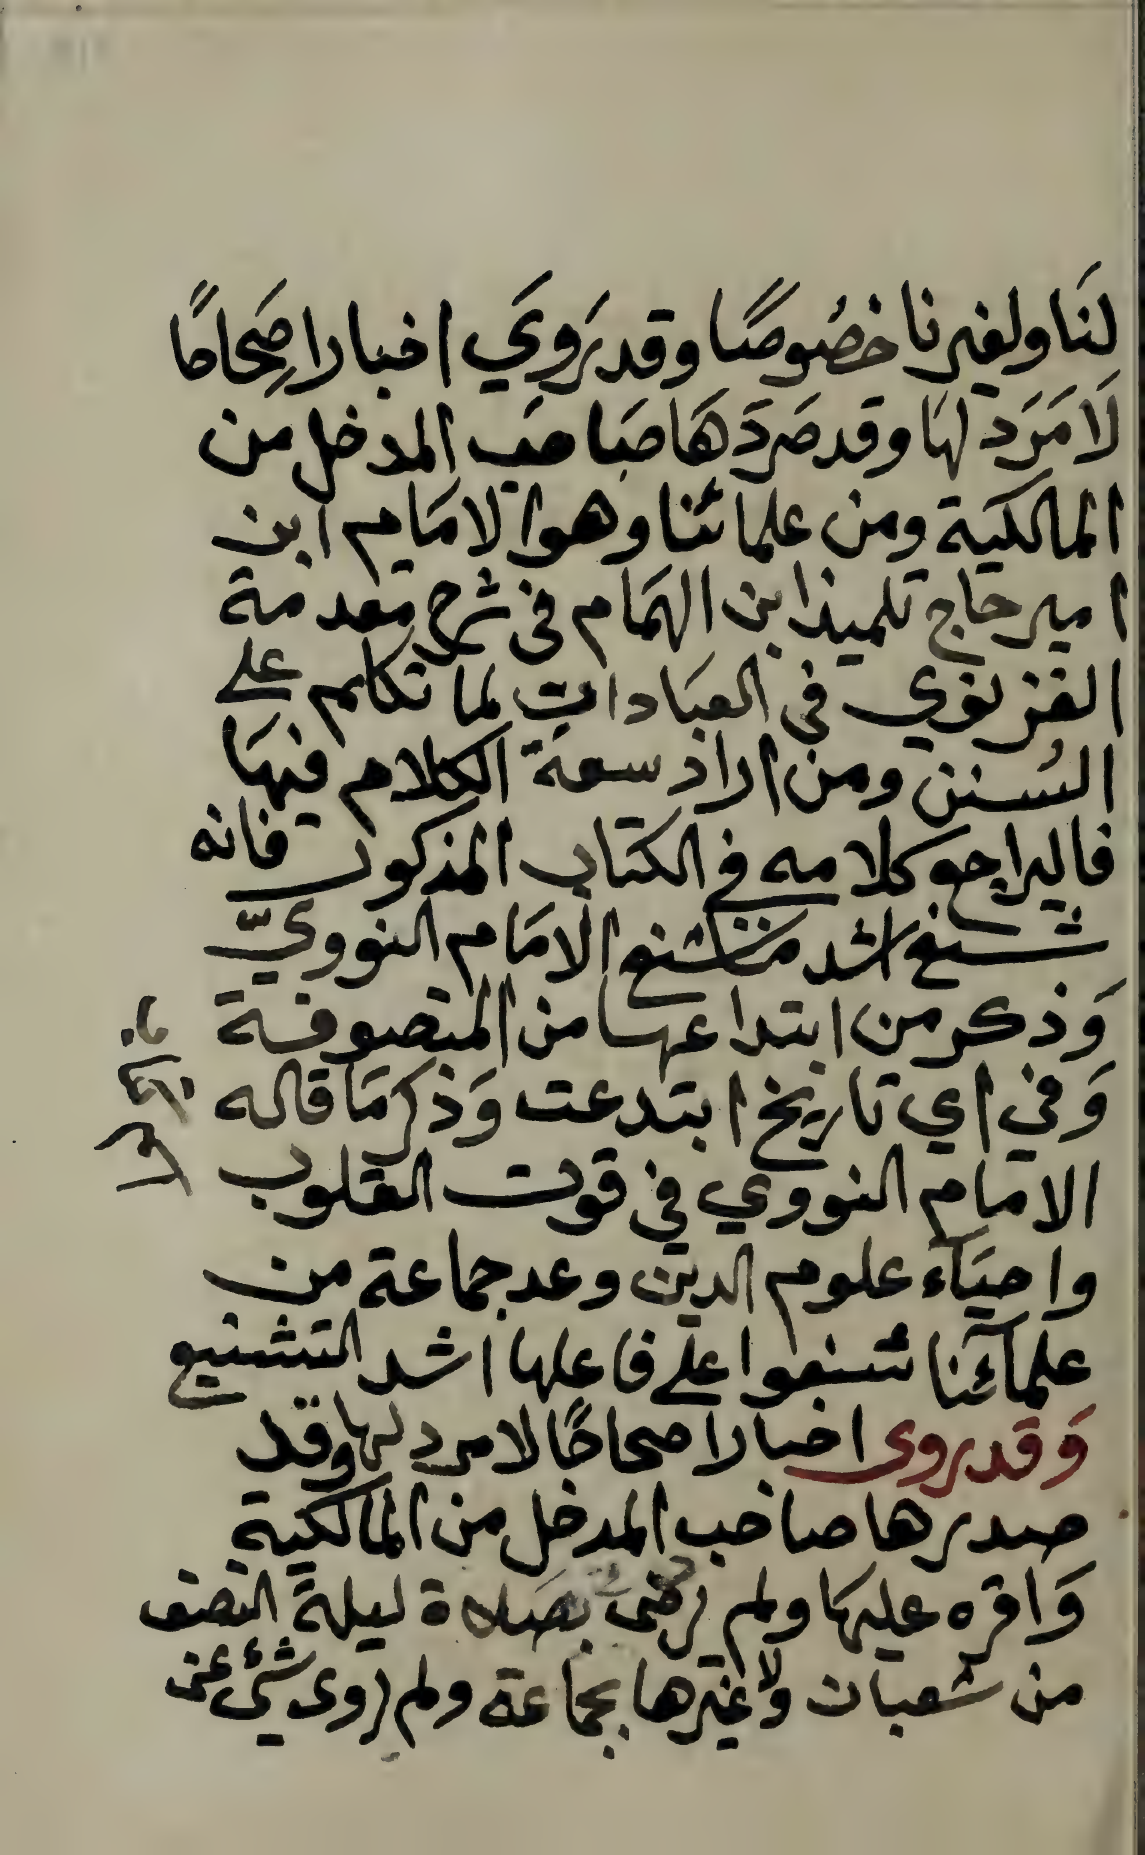 لنَا ولغيرنا خصُوصًا وقد رَوِيَ اخبارا صِحَاحًا
لَا مَرَد لهَا وقد صَرَدَ هَا صَاحب المدخل من
المالكية ومن علمائنا وهو الامَام ابن
امير حاج تلميذ ابن الهمَام في شرح مقدمة
الغزنوي في العبَادات لما تكلم على
السُنن ومن اراد سعة الكلام فيهَا
فاليراجع كلامه في الكتاب المذكور فانه
شنع اشد من شنع الامَام النوويّ
وَذكر من ابتدا عهـا من المتصوفـة
وَفي اي تاريخ ابتدعت وَذكر مَا قاله
الامَام النووي في قوت القلوب
واحيَاء علوم الدين وعد جماعة من
علمآئنا شنعوا على فاعلها اشد التشنيع
وَقد روى اخبارا صحاحًا لا مرد لها وقد
صدرها صاحب المدخل من المالكية
وَاقره عليهَا ولم رضى بصَلاة ليلة النصف
من شعبان ولا غيرها بجماعة ولم روى شئ عن